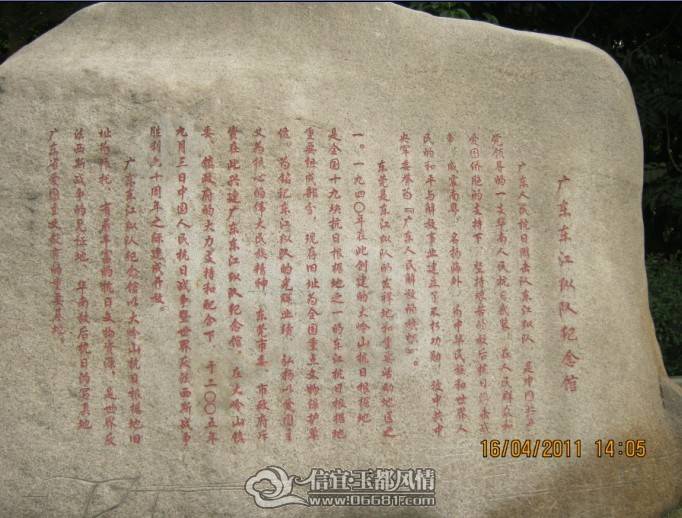 广东东江纵队纪念馆
广东人民抗日游击队东江纵队，是中国共产
党领导的一支华南人民抗日武装，在人民群众和
爱国侨胞的支持下，坚持艰苦的敌后抗日游击战
争，威震南粤，名扬海外，为中华民族和世界人
民的和平与解放事业建立了不朽功勋，被中共中
央军委誉为“广东人民解放的旗帜”。
东莞是东江纵队的发祥地和重要活动地区之
一。一九四〇年在此创建的大岭山抗日根据地
是全国十九块抗日根据地之一的东江抗日根据地
重要组成部分，现存旧址为全国重点文物保护单
位。为铭记东江纵队的光辉业绩，弘扬以爱国主
义为核心的伟大民族精神，东莞市委、市政府斥
资在此兴建广东东江纵队纪念馆。在大岭山镇
委、镇政府的大力支持和配合下，于二〇〇五年
九月三日中国人民抗日战争暨世界反法西斯战争
胜利六十周年之际建成开放。
广东东江纵队纪念馆以大岭山抗日根据地旧
址为依托，有着丰富的抗日文物资源，是世界反
法西斯战争的见证地、华南敌后抗日的写真地、
广东省爱国主义教育的重要基地。
16/04/2011 14:05
信宜·玉都风情
www.06681.com